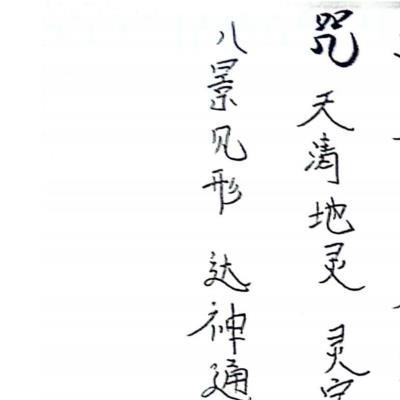 咒 天清地灵 灵
八景见形 达神通